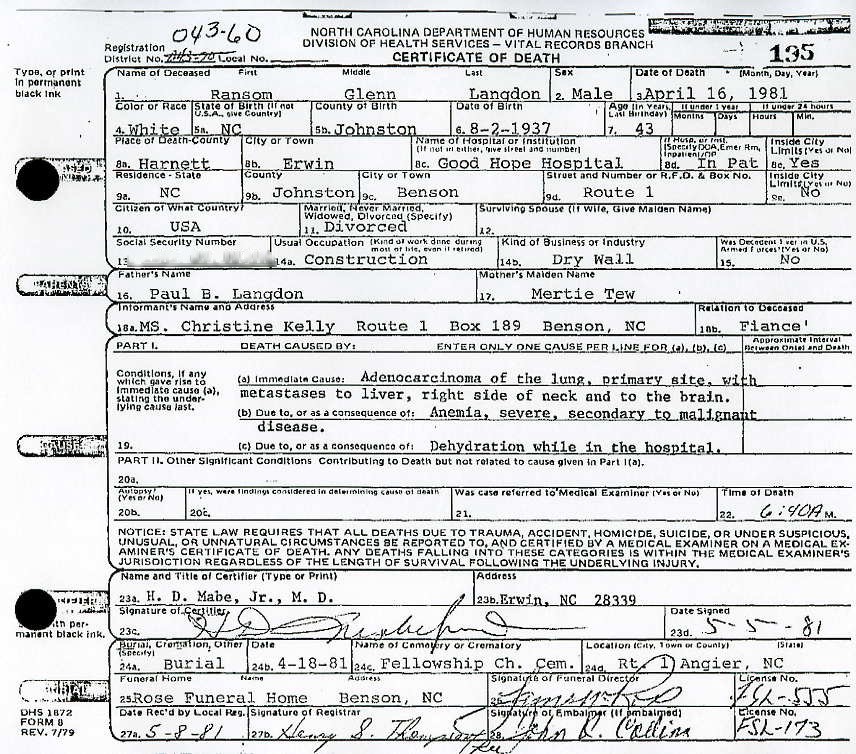 043-60
NORTH CAROLINA DEPARTMENT OF HUMAN RESOURCES
DIVISION OF HEALTH SERVICES – VITAL RECORDS BRANCH
CERTIFICATE OF DEATH
195
Registration
District No. Local No.
Type, or print
in permanent
black ink
Name of Deceased First Middle Last Sex Date of Death (Month, Day, Year)
1. Ransom Glenn Langdon 2. Male 3. April 16, 1981
Color or Race State of Birth (If not U.S.A., give Country) County of Birth Date of Birth Age (In Years, Last Birthday) If under 1 year If under 24 hours
Months Days Hours Min.
4. White 5a. NC 5b. Johnston 6. 8-2-1937 7. 43
Place of Death-County City or Town Name of Hospital or Institution (If not in either, give street and number) If Hosp. or Inst. (Specify DOA, Emer Rm, Inpatient/OP Inside City Limits (Yes or No)
8a. Harnett 8b. Erwin 8c. Good Hope Hospital 8d. In Pat 8e. Yes
Residence - State County City or Town Street and Number or R.F.D. & Box No. Inside City Limits (Yes or No)
9a. NC 9b. Johnston 9c. Benson 9d. Route 1 9e. No
Citizen of What Country? Married, Never Married, Widowed, Divorced (Specify) Surviving Spouse (If Wife, Give Maiden Name)
10. USA 11. Divorced 12.
Social Security Number Usual Occupation (Kind of work done during most of life, even if retired) Kind of Business or Industry Was Decedent Ever in U.S. Armed Forces? (Yes or No)
13 14a. Construction 14b. Dry Wall 15. No
PARENTS
Father's Name Mother's Maiden Name
16. Paul B. Langdon 17. Mertie Tew
Informant's Name and Address Relation to Deceased
18a. MS. Christine Kelly Route 1 Box 189 Benson, NC 18b. Fiance'
PART I. DEATH CAUSED BY: ENTER ONLY ONE CAUSE PER LINE FOR (a), (b), (c) Approximate Interval Between Onset and Death
Conditions, if any
which gave rise to
immediate cause (a),
stating the under-
lying cause last.
(a) Immediate Cause: Adenocarcinoma of the lung, primary site, with
metastases to liver, right side of neck and to the brain.
(b) Due to, or as a consequence of: Anemia, severe, secondary to malignant
disease.
CAUSE
19. (c) Due to, or as a consequence of: Dehydration while in the hospital.
PART II. Other Significant Conditions Contributing to Death but not related to cause given in Part I(a).
20a.
Autopsy? (Yes or No) If yes, were findings considered in determining cause of death Was case referred to Medical Examiner (Yes or No) Time of Death
20b. 20c. 21. 22. 6:40A M.
NOTICE: STATE LAW REQUIRES THAT ALL DEATHS DUE TO TRAUMA, ACCIDENT, HOMICIDE, SUICIDE, OR UNDER SUSPICIOUS,
UNUSUAL, OR UNNATURAL CIRCUMSTANCES BE REPORTED TO, AND CERTIFIED BY A MEDICAL EXAMINER ON A MEDICAL EX-
AMINER'S CERTIFICATE OF DEATH. ANY DEATHS FALLING INTO THESE CATEGORIES IS WITHIN THE MEDICAL EXAMINER'S
JURISDICTION REGARDLESS OF THE LENGTH OF SURVIVAL FOLLOWING THE UNDERLYING INJURY.
Name and Title of Certifier (Type or Print) Address
23a. H. D. Mabe, Jr., M. D. 23b. Erwin, NC 28339
Signature of Certifier Date Signed
23c. 23d. 5-5-81
with per-
manent black ink.
Burial, Cremation, Other (Specify) Date Name of Cemetery or Crematory Location (City, Town or County) (State)
24a. Burial 24b. 4-18-81 24c. Fellowship Ch. Cem. 24d. Rt. 1 Angier, NC
BURIAL
Funeral Home Name Address Signature of Funeral Director License No.
25 Rose Funeral Home Benson, NC 26.
DHS 1872
FORM 8
REV. 7/79
Date Rec'd by Local Reg. Signature of Registrar Signature of Embalmer (If embalmed) License No.
27a. 5-8-81 27b. Henry S. Thompson 28. John R. Collins FSL-173